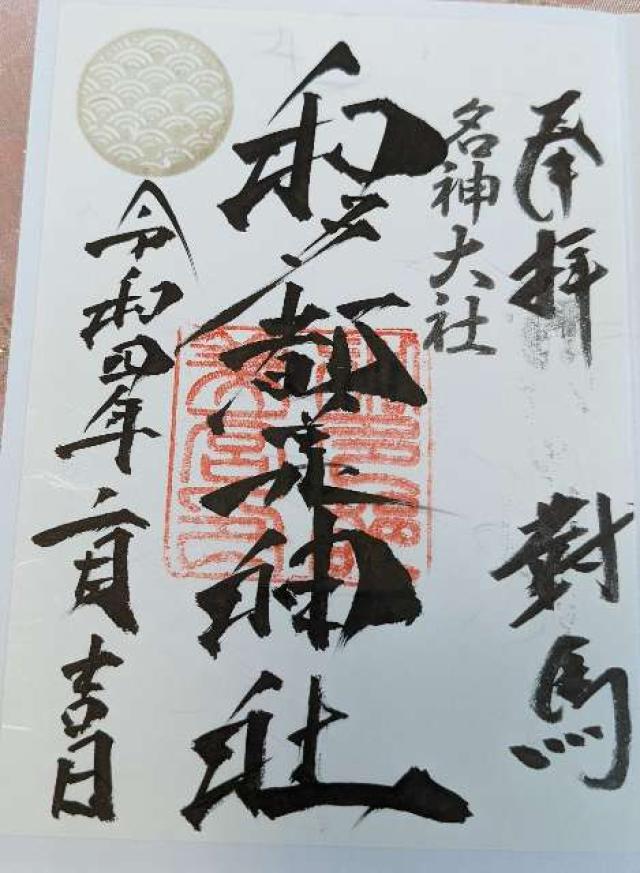 奉拝　對馬
名神大社
和多都美神社
令和四年二月吉日